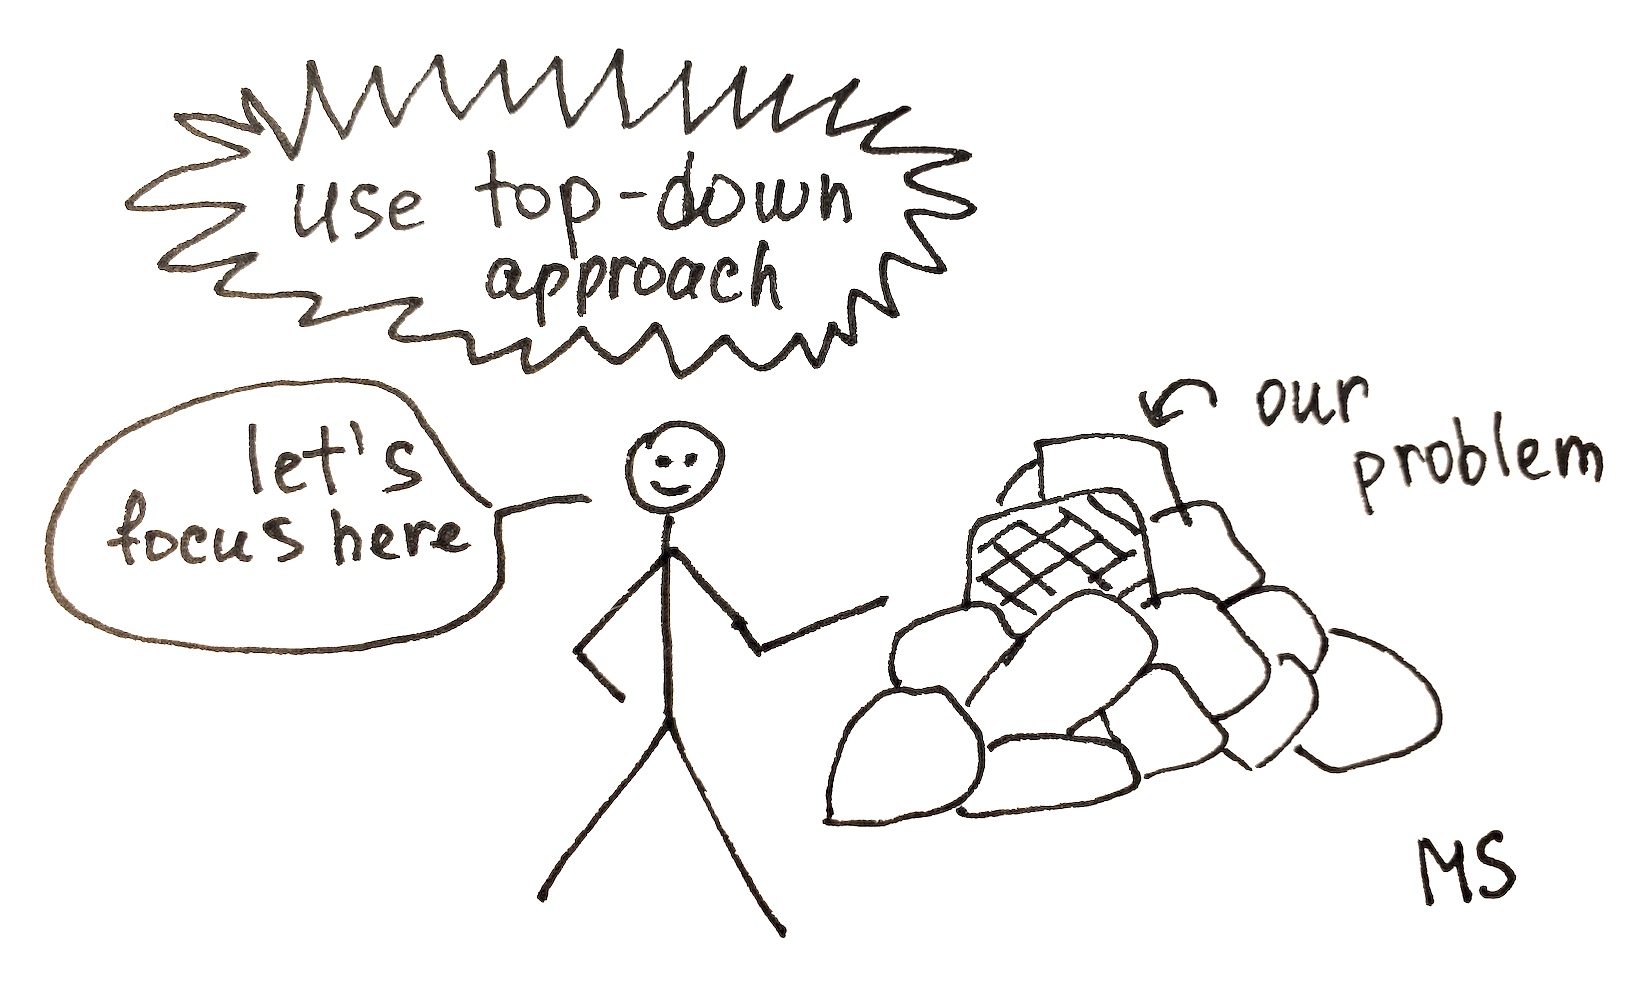 use top-down
approach
let's
focus here
our
problem
MS